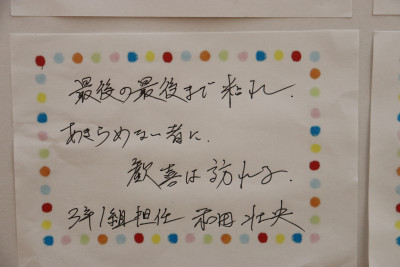 最後の最後まで粘れ.
あきらめない者に.
歓喜は訪れる.
3年1組担任 和田壮央